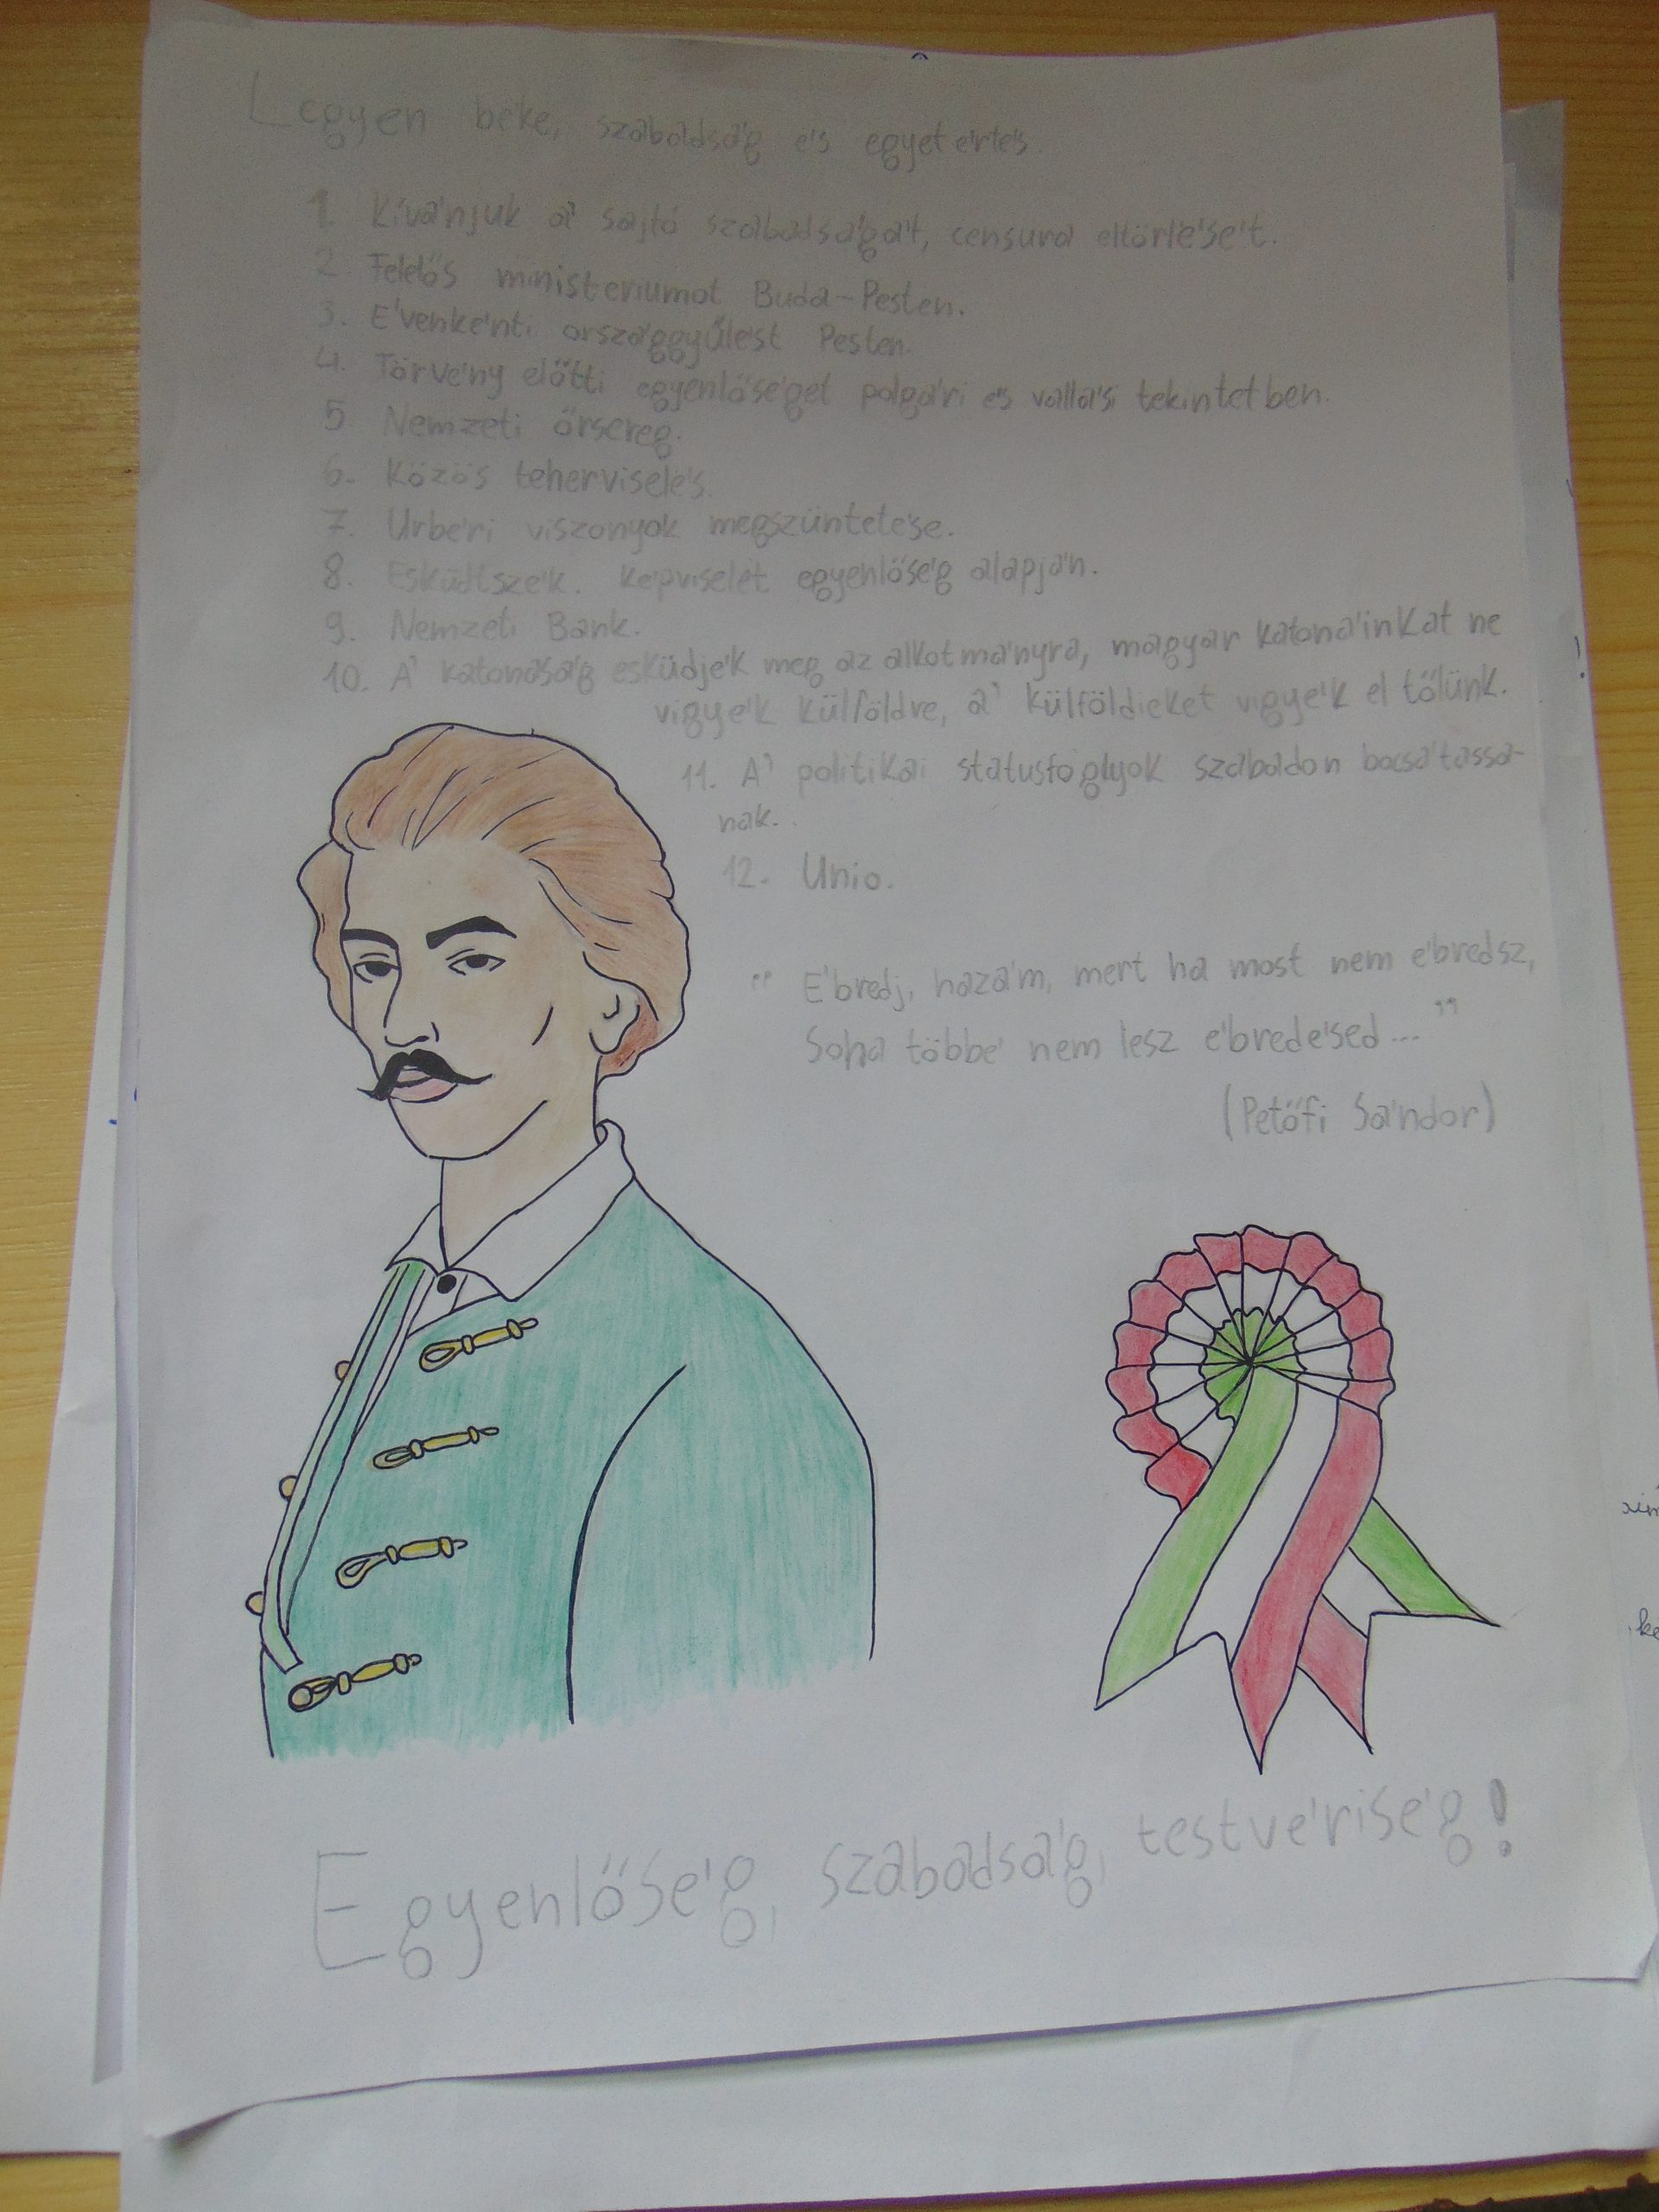 Legyen béke, szabadság és egyetértés.
1. Kívánjuk a' sajtó szabadságát, censura eltörlését.
2. Felelős ministeriumot Buda-Pesten.
3. Évenkénti országgyűlést Pesten.
4. Törvény előtti egyenlőséget polgári és vallási tekintetben.
5. Nemzeti őrsereg.
6. Közös teherviselés.
7. Urbéri viszonyok megszüntetése.
8. Esküdtszék. Képviselet egyenlőség alapján.
9. Nemzeti Bank.
10. A' katonaság esküdjék meg az alkotmányra, magyar katonáinkat ne
vigyék külföldre, a' külföldieket vigyék el tőlünk.
11. A' politikai statusfoglyok szabadon bocsátassa-
nak.
12. Unio.
" Ébredj, hazám, mert ha most nem ébredsz,
Soha többé nem lesz ébredésed... "
(Petőfi Sándor)
Egyenlőség, szabadság, testvériség!